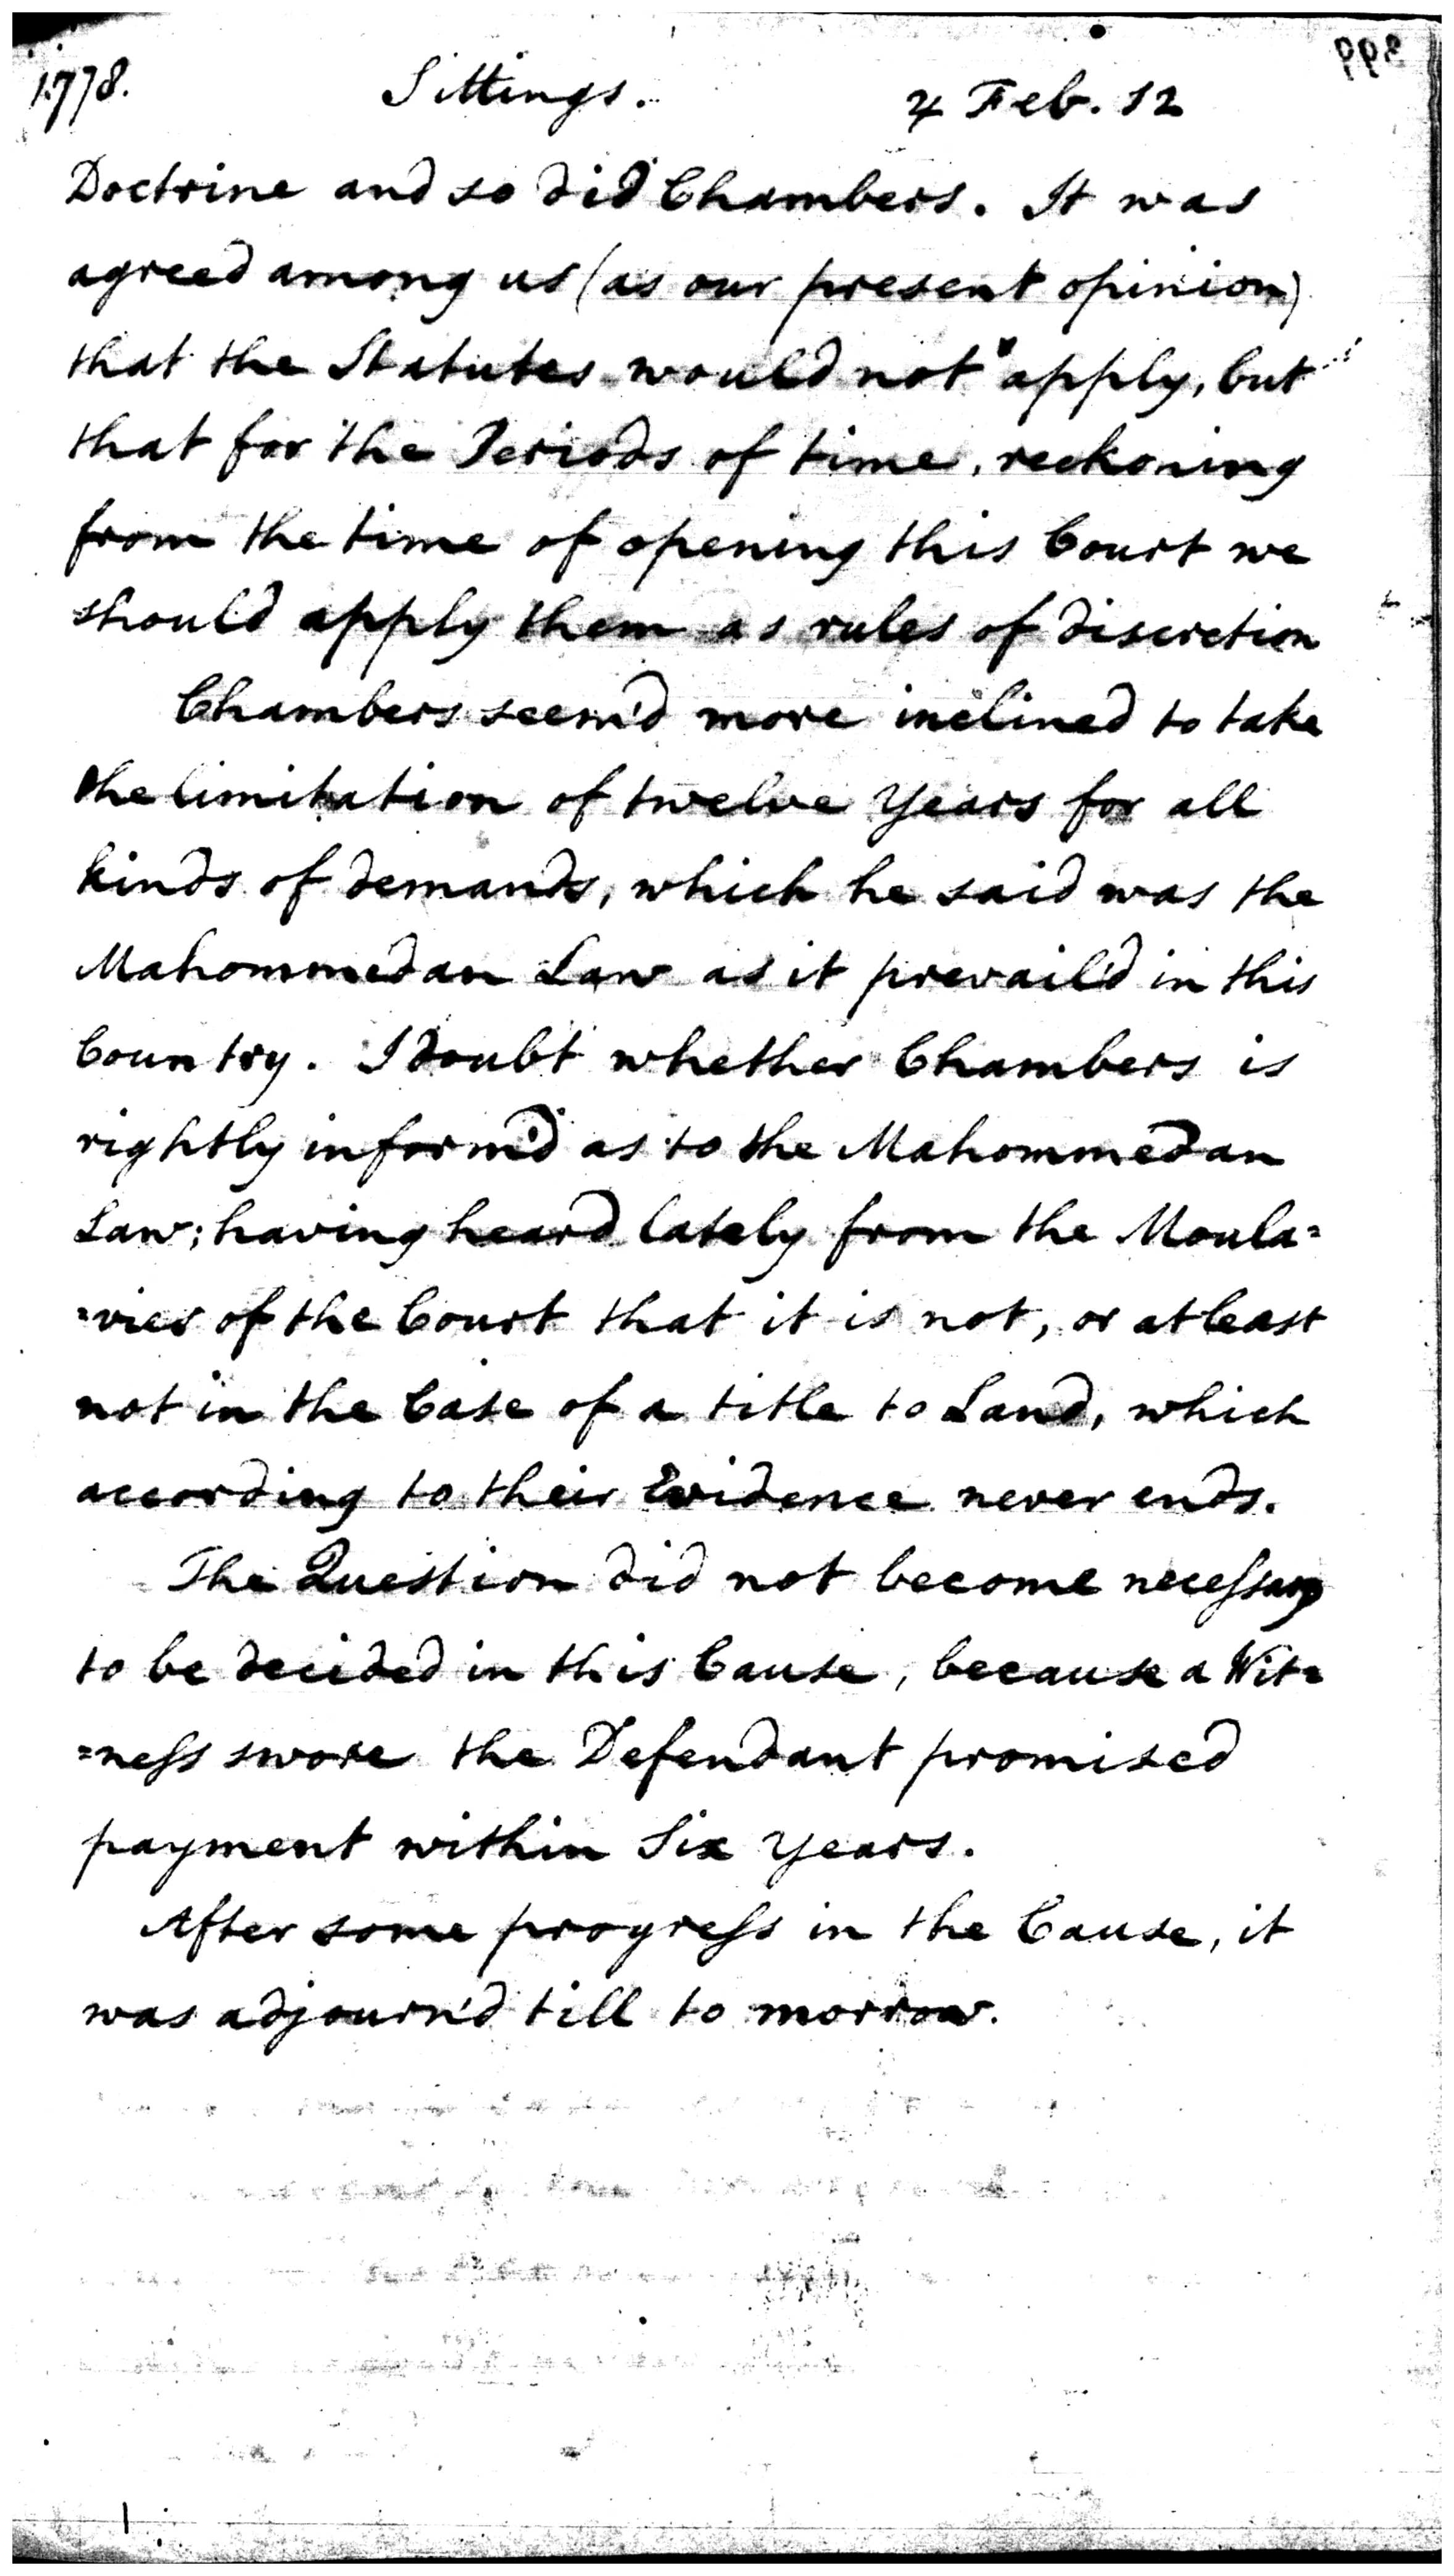 1778. Sittings. ♃ Feb. 12
Doctrine and so did Chambers. It was
agreed among us (as our present opinion)
that the Statutes would not apply, but
that for the Periods of time, reckoning
from the time of opening this Court we
should apply them as rules of discretion
Chambers seem'd more inclined to take
the limitation of twelve Years for all
kinds of demands, which he said was the
Mahommedan Law as it prevail'd in this
Country. I doubt whether Chambers is
rightly inform'd as to the Mahommedan
Law; having heard lately from the Moula=
=vies of the Court that it is not, or at least
not in the Case of a title to Land, which
according to their Evidence never ends.
The Question did not become neceſsary
to be decided in this Cause, because a Wit=
=neſs swore the Defendant promised
payment within Six Years.
After some progreſs in the Cause, it
was adjourn'd till to morrow.